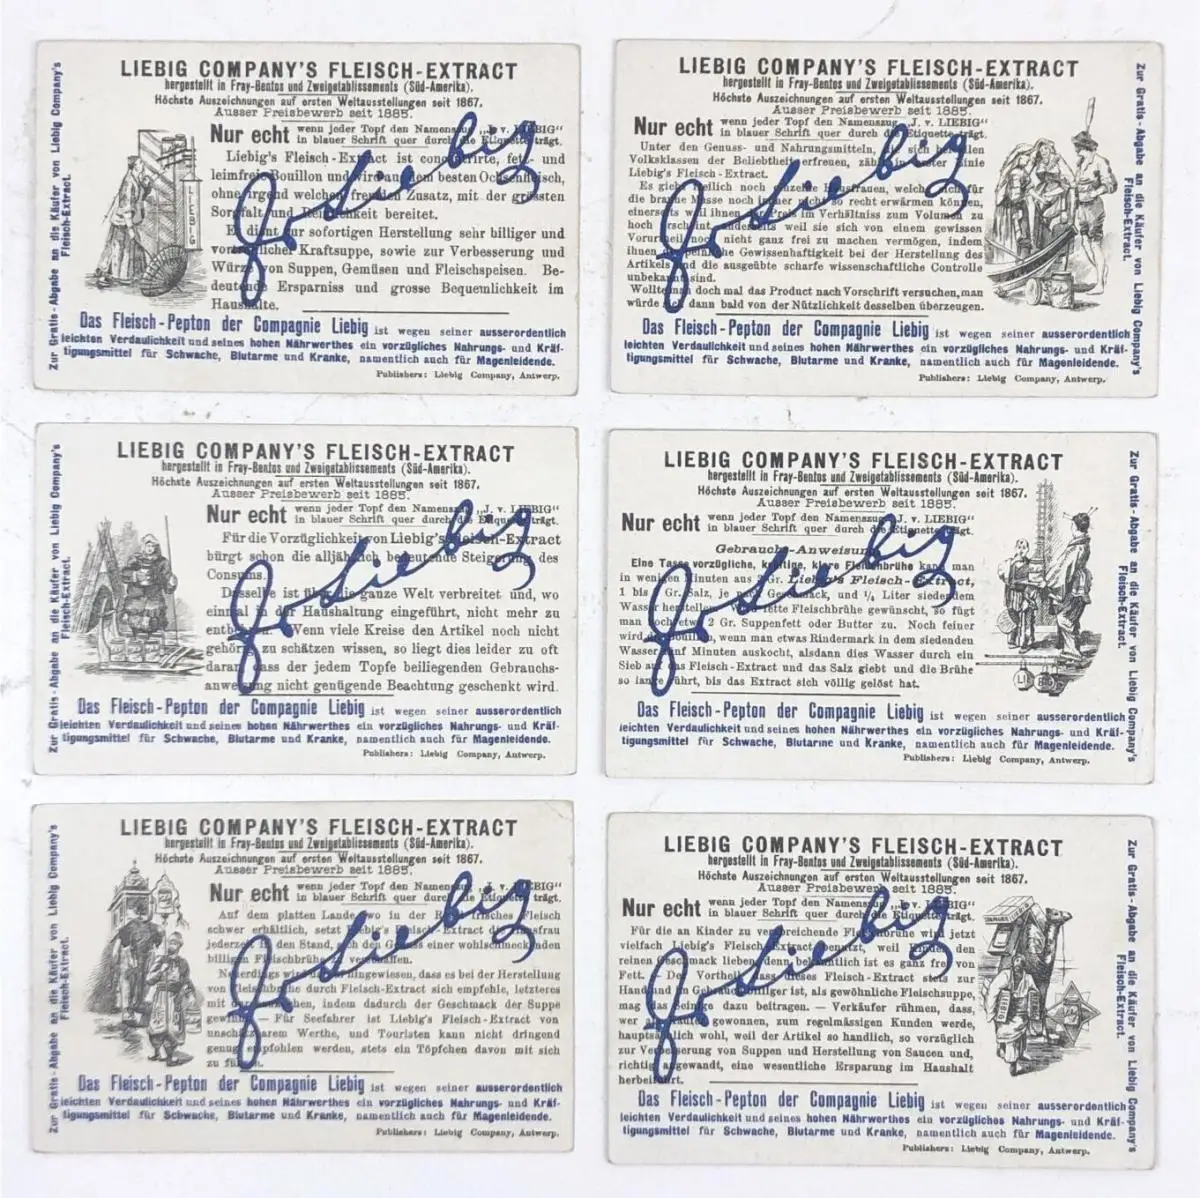 LIEBIG COMPANY'S FLEISCH-EXTRACT
hergestellt in Fray-Bentos und Zweigetablissements (Süd-Amerika).
Höchste Auszeichnungen auf ersten Weltausstellungen seit 1867.
Ausser Preisbewerb seit 1885.
Nur echt wenn jeder Topf den Namenszug „J. v. LIEBIG“
in blauer Schrift quer durch die Etiquette trägt.
Liebig's Fleisch-Extract ist concentrirte, fett- und
leimfreie Bouillon und wird aus dem besten Ochsenfleisch,
ohne irgend welchen fremden Zusatz, mit der grössten
Sorgfalt und Reinlichkeit bereitet.
Er dient zur sofortigen Herstellung sehr billiger und
vortrefflicher Kraftsuppe, sowie zur Verbesserung und
Würze von Suppen, Gemüsen und Fleischspeisen. Be-
deutende Ersparniss und grosse Bequemlichkeit im
Haushalte.
Das Fleisch-Pepton der Compagnie Liebig ist wegen seiner ausserordentlich
leichten Verdaulichkeit und seines hohen Nährwerthes ein vorzügliches Nahrungs- und Kräf-
tigungsmittel für Schwache, Blutarme und Kranke, namentlich auch für Magenleidende.
Publishers: Liebig Company, Antwerp.
Zur Gratis-Abgabe an die Käufer von Liebig Company's
Fleisch-Extract.
LIEBIG
JvLiebig
LIEBIG COMPANY'S FLEISCH-EXTRACT
hergestellt in Fray-Bentos und Zweigetablissements (Süd-Amerika).
Höchste Auszeichnungen auf ersten Weltausstellungen seit 1867.
Ausser Preisbewerb seit 1885.
Nur echt wenn jeder Topf den Namenszug „J. v. LIEBIG“
in blauer Schrift quer durch die Etiquette trägt.
Unter den Genuss- und Nahrungsmitteln, die sich bei allen
Volksklassen der Beliebtheit erfreuen, zählt in erster Linie
Liebig's Fleisch-Extract.
Es giebt freilich noch einzelne Hausfrauen, welche sich für
die braune Masse noch immer nicht so recht erwärmen können,
einerseits weil ihnen der Preis im Verhältniss zum Volumen zu
hoch erscheint, anderseits weil sie sich von einem gewissen
Vorurtheil noch nicht ganz frei zu machen vermögen, indem
ihnen die peinliche Gewissenhaftigkeit bei der Herstellung des
Artikels und die ausgeübte scharfe wissenschaftliche Controlle
unbekannt sind.
Wollten sie doch mal das Product nach Vorschrift versuchen, man
würde sich dann bald von der Nützlichkeit desselben überzeugen.
Das Fleisch-Pepton der Compagnie Liebig ist wegen seiner ausserordentlich
leichten Verdaulichkeit und seines hohen Nährwerthes ein vorzügliches Nahrungs- und Kräf-
tigungsmittel für Schwache, Blutarme und Kranke, namentlich auch für Magenleidende.
Publishers: Liebig Company, Antwerp.
Zur Gratis-Abgabe an die Käufer von Liebig Company's
Fleisch-Extract.
JvLiebig
LIEBIG COMPANY'S FLEISCH-EXTRACT
hergestellt in Fray-Bentos und Zweigetablissements (Süd-Amerika).
Höchste Auszeichnungen auf ersten Weltausstellungen seit 1867.
Ausser Preisbewerb seit 1885.
Nur echt wenn jeder Topf den Namenszug „J. v. LIEBIG“
in blauer Schrift quer durch die Etiquette trägt.
Für die Vorzüglichkeit von Liebig's Fleisch-Extract
bürgt schon die alljährlich bedeutende Steigerung des
Consums.
Desselbe ist über die ganze Welt verbreitet und, wo
einmal in der Haushaltung eingeführt, nicht mehr zu
entbehren. Wenn viele Kreise den Artikel noch nicht
gehörig zu schätzen wissen, so liegt dies leider zu oft
daran, dass der jedem Topfe beiliegenden Gebrauchs-
anweisung nicht genügende Beachtung geschenkt wird.
Das Fleisch-Pepton der Compagnie Liebig ist wegen seiner ausserordentlich
leichten Verdaulichkeit und seines hohen Nährwerthes ein vorzügliches Nahrungs- und Kräf-
tigungsmittel für Schwache, Blutarme und Kranke, namentlich auch für Magenleidende.
Publishers: Liebig Company, Antwerp.
Zur Gratis-Abgabe an die Käufer von Liebig Company's
Fleisch-Extract.
JvLiebig
LIEBIG COMPANY'S FLEISCH-EXTRACT
hergestellt in Fray-Bentos und Zweigetablissements (Süd-Amerika).
Höchste Auszeichnungen auf ersten Weltausstellungen seit 1867.
Ausser Preisbewerb seit 1885.
Nur echt wenn jeder Topf den Namenszug „J. v. LIEBIG“
in blauer Schrift quer durch die Etiquette trägt.
Gebrauchs-Anweisung
Eine Tasse vorzügliche, kräftige, klare Fleischbrühe kann man
in wenigen Minuten aus Gr. Liebig's Fleisch-Extract,
1 bis Gr. Salz, je nach Geschmack, und ¼ Liter siedendem
Wasser herstellen. Wird fette Fleischbrühe gewünscht, so fügt
man noch etwa 2 Gr. Suppenfett oder Butter zu. Noch feiner
wird die Bouillon, wenn man etwas Rindermark in dem siedenden
Wasser Minuten auskocht, alsdann dies Wasser durch ein
Sieb auf das Fleisch-Extract und das Salz giebt und die Brühe
so lange rührt, bis das Extract sich völlig gelöst hat.
Das Fleisch-Pepton der Compagnie Liebig ist wegen seiner ausserordentlich
leichten Verdaulichkeit und seines hohen Nährwerthes ein vorzügliches Nahrungs- und Kräf-
tigungsmittel für Schwache, Blutarme und Kranke, namentlich auch für Magenleidende.
Publishers: Liebig Company, Antwerp.
Zur Gratis-Abgabe an die Käufer von Liebig Company's
Fleisch-Extract.
LI
JvLiebig
LIEBIG COMPANY'S FLEISCH-EXTRACT
hergestellt in Fray-Bentos und Zweigetablissements (Süd-Amerika).
Höchste Auszeichnungen auf ersten Weltausstellungen seit 1867.
Ausser Preisbewerb seit 1885.
Nur echt wenn jeder Topf den Namenszug „J. v. LIEBIG“
in blauer Schrift quer durch die Etiquette trägt.
Auf dem platten Lande, wo in der Regel frisches Fleisch
schwer erhältlich, setzt Liebig's Fleisch-Extract die Hausfrau
jederzeit in den Stand, sich den Genuss einer wohlschmeckenden
billigen Fleischbrühe zu verschaffen.
Neuerdings wird darauf hingewiesen, dass es bei der Herstellung
von Fleischbrühe durch Fleisch-Extract sich empfehle, letzteres
mit durchzukochen, indem dadurch der Geschmack der Suppe
gewinne. — Für Seefahrer ist Liebig's Fleisch-Extract von
unschätzbarem Werthe, und Touristen kann nicht dringend
genug empfohlen werden, stets ein Töpfchen davon mit sich
zu führen.
Das Fleisch-Pepton der Compagnie Liebig ist wegen seiner ausserordentlich
leichten Verdaulichkeit und seines hohen Nährwerthes ein vorzügliches Nahrungs- und Kräf-
tigungsmittel für Schwache, Blutarme und Kranke, namentlich auch für Magenleidende.
Publishers: Liebig Company, Antwerp.
Zur Gratis-Abgabe an die Käufer von Liebig Company's
Fleisch-Extract.
JvLiebig
LIEBIG COMPANY'S FLEISCH-EXTRACT
hergestellt in Fray-Bentos und Zweigetablissements (Süd-Amerika).
Höchste Auszeichnungen auf ersten Weltausstellungen seit 1867.
Ausser Preisbewerb seit 1885.
Nur echt wenn jeder Topf den Namenszug „J. v. LIEBIG“
in blauer Schrift quer durch die Etiquette trägt.
Für die an Kinder zu verabreichende Fleischbrühe wird jetzt
vielfach Liebig's Fleisch-Extract benutzt, weil Kinder den
reinen Geschmack lieben, denn bekanntlich ist es ganz frei von
Fett. — Der Vortheil, dass dieses Fleisch-Extract stets zur
Hand und im Gebrauch billiger ist, als gewöhnliche Fleischsuppe,
mag das Seinige dazu beitragen. — Verkäufer rühmen, dass,
wer als Käufer gewonnen, zum regelmässigen Kunden werde,
hauptsächlich wohl, weil der Artikel so handlich, so vorzüglich
zur Verbesserung von Suppen und Herstellung von Saucen und,
richtig angewandt, eine wesentliche Ersparung im Haushalt
herbeiführt.
Das Fleisch-Pepton der Compagnie Liebig ist wegen seiner ausserordentlich
leichten Verdaulichkeit und seines hohen Nährwerthes ein vorzügliches Nahrungs- und Kräf-
tigungsmittel für Schwache, Blutarme und Kranke, namentlich auch für Magenleidende.
Publishers: Liebig Company, Antwerp.
Zur Gratis-Abgabe an die Käufer von Liebig Company's
Fleisch-Extract.
LIEBIG
JvLiebig